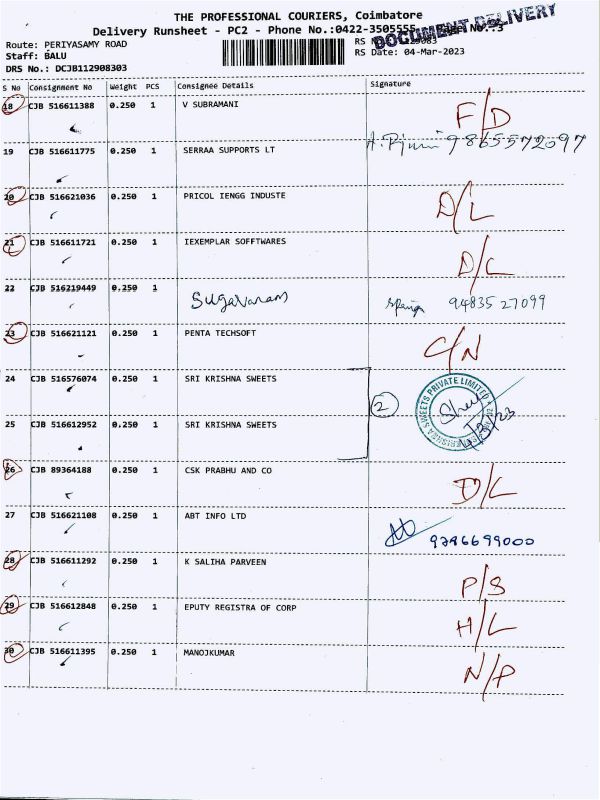 THE PROFESSIONAL COURIERS, Coimbatore
Delivery Runsheet - PC2 - Phone No.:0422-3505555
DOCUMENT DELIVERY
Route: PERIYASAMY ROAD
Staff: BALU
RS Date: 04-Mar-2023
DRS No.: DCJB112908303
S No Consignment No Weight PCS Consignee Details Signature
18 CJB 516611388 0.250 1 V SUBRAMANI F/D
19 CJB 516611775 0.250 1 SERRAA SUPPORTS LT 9865572097
20 CJB 516621036 0.250 1 PRICOL IENGG INDUSTE D/L
21 CJB 516611721 0.250 1 IEXEMPLAR SOFFTWARES D/L
22 CJB 516219449 0.250 1 Sugavanam 94835 27099
23 CJB 516621121 0.250 1 PENTA TECHSOFT C/N
24 CJB 516576074 0.250 1 SRI KRISHNA SWEETS 2
25 CJB 516612952 0.250 1 SRI KRISHNA SWEETS 4/3/23
26 CJB 89364188 0.250 1 CSK PRABHU AND CO D/L
27 CJB 516621108 0.250 1 ABT INFO LTD 9786699000
28 CJB 516611292 0.250 1 K SALIHA PARVEEN P/S
29 CJB 516612848 0.250 1 EPUTY REGISTRA OF CORP H/L
30 CJB 516611395 0.250 1 MANOJKUMAR N/P